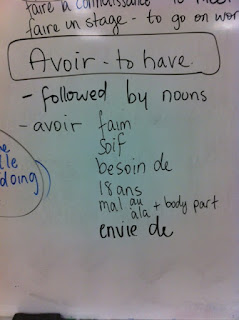 faire la connaissance - to meet
faire un stage - to go on wor
Avoir - to have
- followed by nouns
- avoir faim
soif
besoin de
18 ans
mal au
à la + body part
envie de
doing